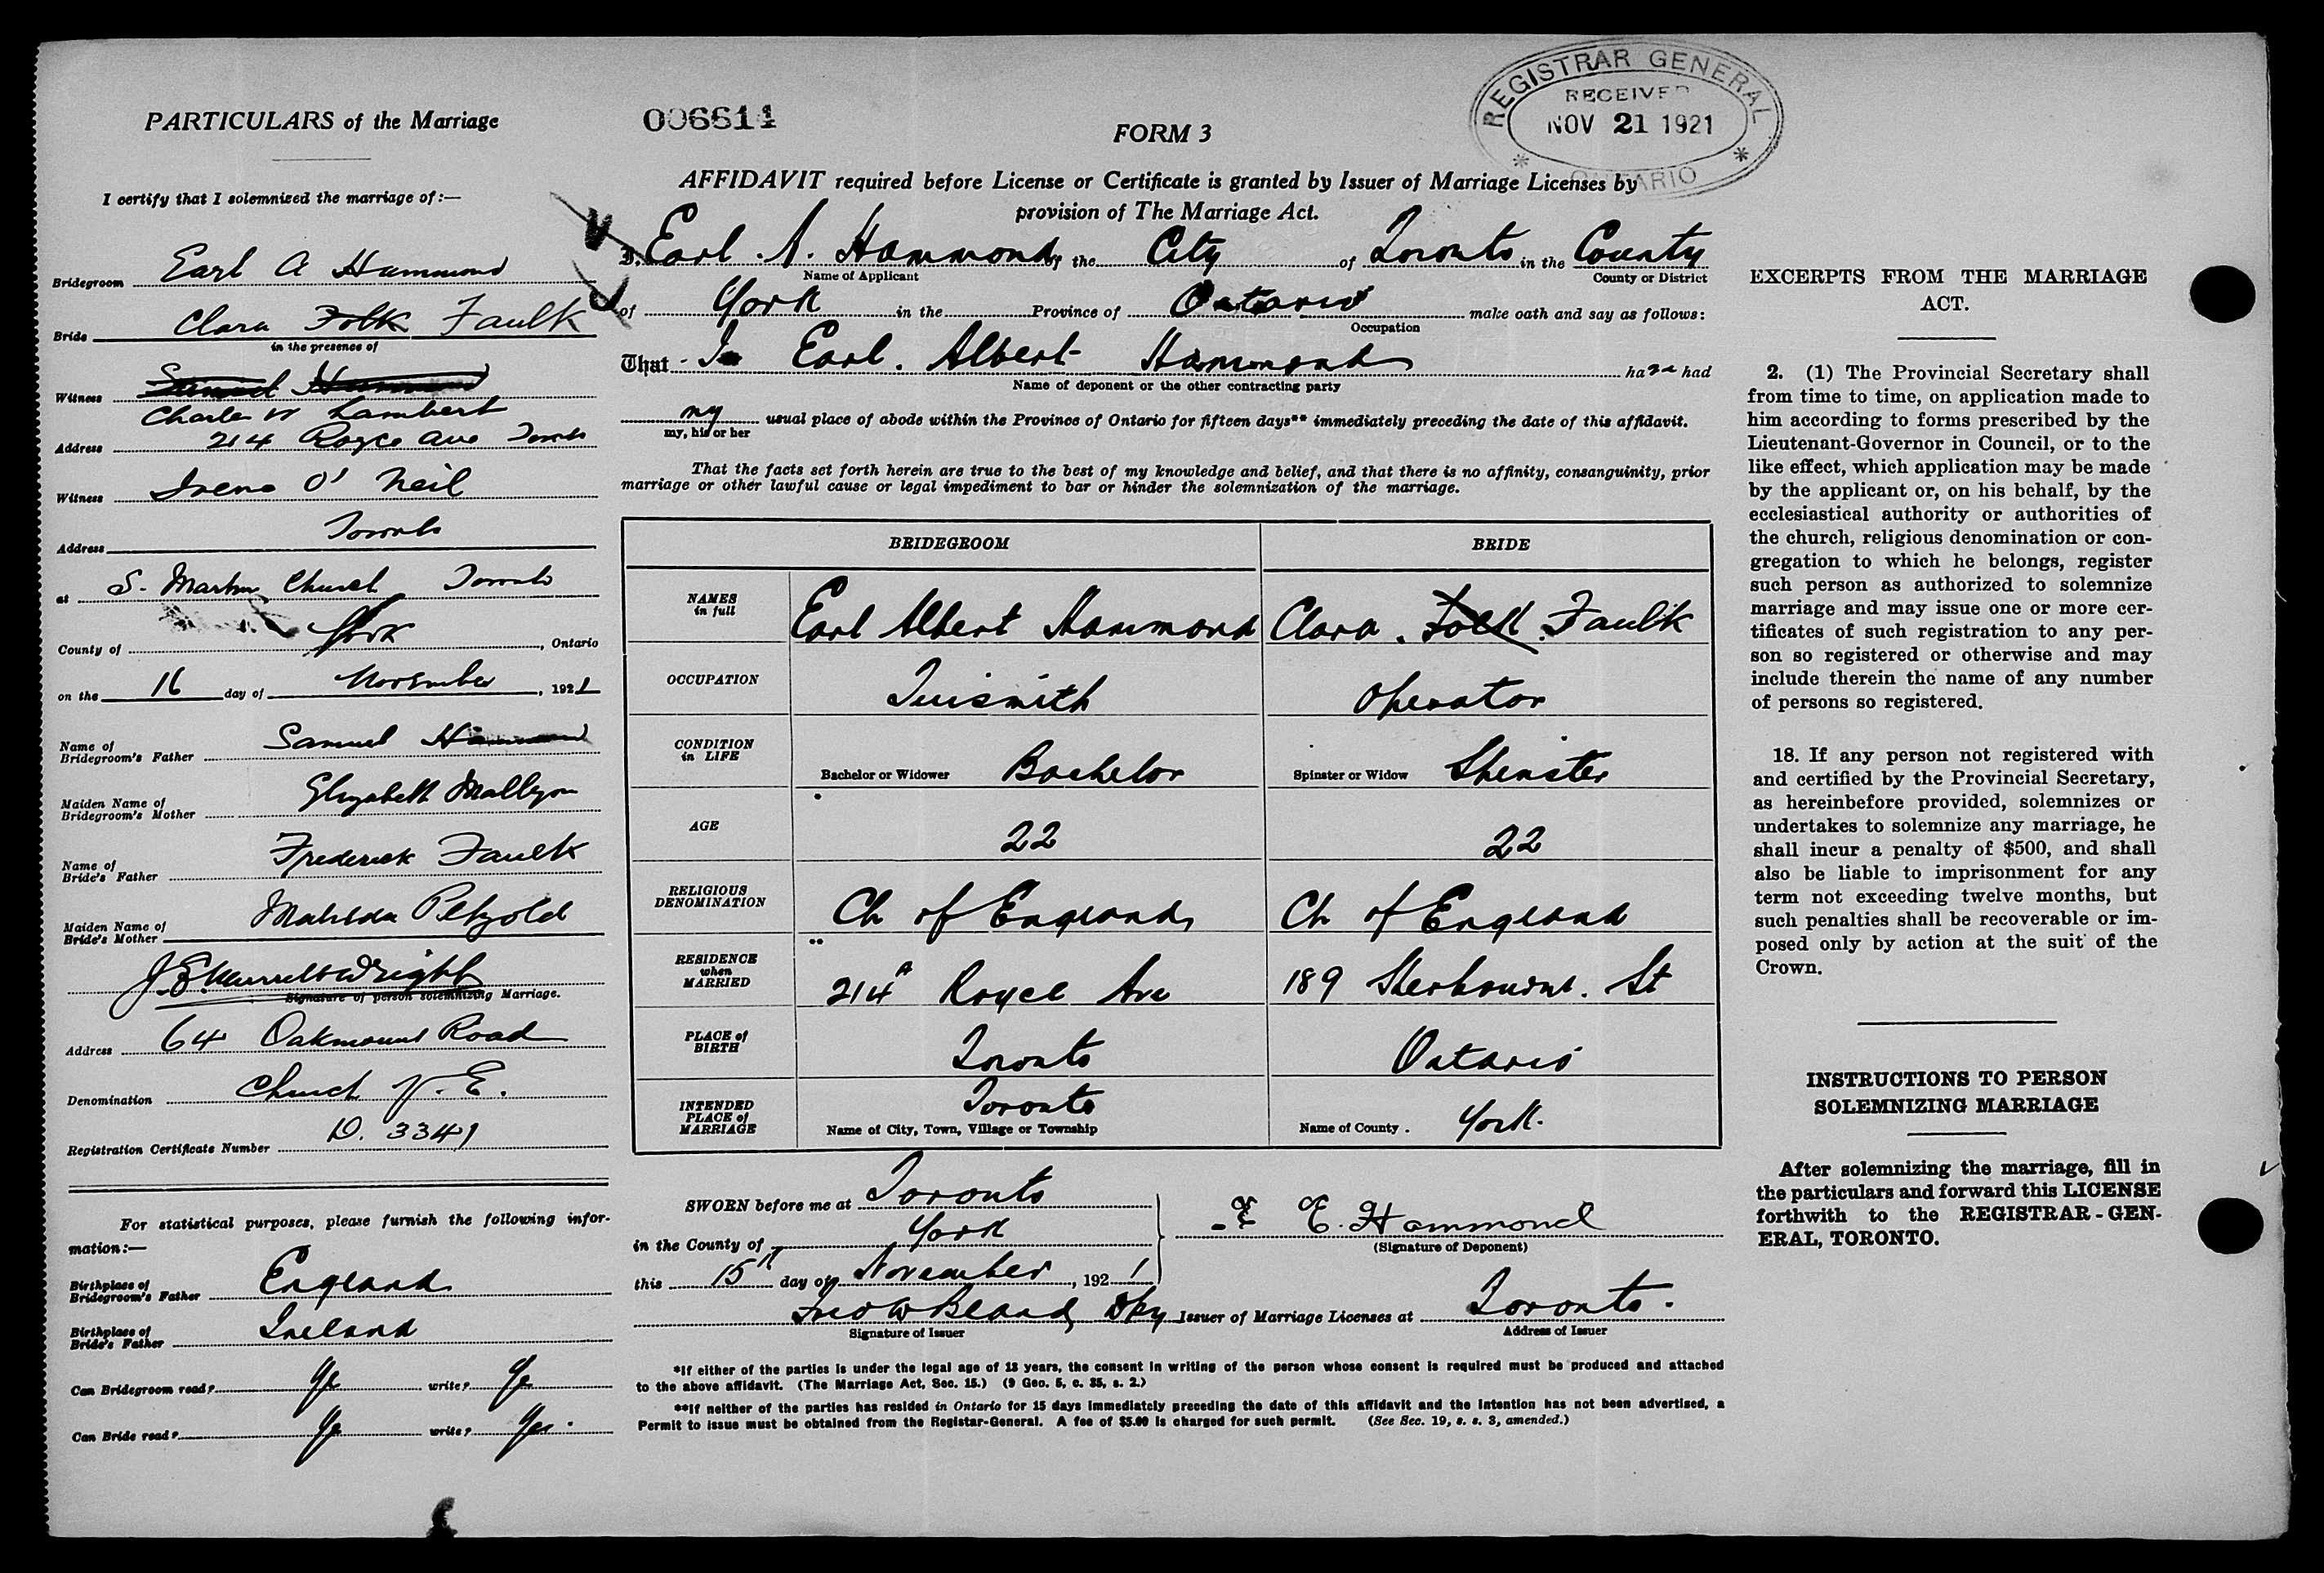 PARTICULARS of the Marriage
I certify that I solemnized the marriage of:—
Bridegroom Earl A Hammond
Bride Clara Folk Faulk
in the presence of
Witness Samuel Hammond
Charles W Lambert
Address 214 Royce Ave Toronto
Witness Irene O' Neil
Address Toronto
at S. Martins Church Toronto
County of York, Ontario
on the 16 day of November, 1921
Name of Bridegroom's Father Samuel Hammond
Maiden Name of Bridegroom's Mother Elizabeth
Name of Bride's Father Frederick Faulk
Maiden Name of Bride's Mother Matilda Petzold
Signature of person solemnizing Marriage.
Address 64 Oakmount Road
Denomination Church of E.
Registration Certificate Number D. 3341
For statistical purposes, please furnish the following infor-
mation:—
Birthplace of Bridegroom's Father England
Birthplace of Bride's Father Ireland
Can Bridegroom read? Ye write? Ye
Can Bride read? Ye write? Yes.
006611
FORM 3
REGISTRAR GENERAL
RECEIVED
NOV 21 1921
ONTARIO
AFFIDAVIT required before License or Certificate is granted by Issuer of Marriage Licenses by
provision of The Marriage Act.
I, Earl A. Hammond of the City of Toronto in the County
Name of Applicant County or District
of York in the Province of Ontario make oath and say as follows:
Occupation
That I Earl Albert Hammond have had
Name of deponent or the other contracting party
my usual place of abode within the Province of Ontario for fifteen days** immediately preceding the date of this affidavit.
my, his or her
That the facts set forth herein are true to the best of my knowledge and belief, and that there is no affinity, consanguinity, prior
marriage or other lawful cause or legal impediment to bar or hinder the solemnization of the marriage.
BRIDEGROOM BRIDE
NAMES in full Earl Albert Hammond Clara Folk Faulk
OCCUPATION Tinsmith Operator
CONDITION in LIFE Bachelor or Widower Bachelor Spinster or Widow Spinster
AGE 22 22
RELIGIOUS DENOMINATION Ch of England Ch of England
RESIDENCE when MARRIED 214A Royce Ave 189 Sherbourne St
PLACE of BIRTH Toronto Ontario
INTENDED PLACE of MARRIAGE Toronto
Name of City, Town, Village or Township Name of County. York.
SWORN before me at Toronto
in the County of York
this 15th day of November, 1921
E. Hammond
(Signature of Deponent)
Jno W Beard Dpy Issuer of Marriage Licenses at Toronto.
Signature of Issuer Address of Issuer
*If either of the parties is under the legal age of 18 years, the consent in writing of the person whose consent is required must be produced and attached
to the above affidavit. (The Marriage Act, Sec. 15.) (9 Geo. 5, c. 35, s. 2.)
**If neither of the parties has resided in Ontario for 15 days immediately preceding the date of this affidavit and the intention has not been advertised, a
Permit to issue must be obtained from the Registar-General. A fee of $5.00 is charged for such permit. (See Sec. 19, s. s. 3, amended.)
EXCERPTS FROM THE MARRIAGE
ACT.
2. (1) The Provincial Secretary shall
from time to time, on application made to
him according to forms prescribed by the
Lieutenant-Governor in Council, or to the
like effect, which application may be made
by the applicant or, on his behalf, by the
ecclesiastical authority or authorities of
the church, religious denomination or con-
gregation to which he belongs, register
such person as authorized to solemnize
marriage and may issue one or more cer-
tificates of such registration to any per-
son so registered or otherwise and may
include therein the name of any number
of persons so registered.
18. If any person not registered with
and certified by the Provincial Secretary,
as hereinbefore provided, solemnizes or
undertakes to solemnize any marriage, he
shall incur a penalty of $500, and shall
also be liable to imprisonment for any
term not exceeding twelve months, but
such penalties shall be recoverable or im-
posed only by action at the suit of the
Crown.
INSTRUCTIONS TO PERSON
SOLEMNIZING MARRIAGE
After solemnizing the marriage, fill in
the particulars and forward this LICENSE
forthwith to the REGISTRAR-GEN-
ERAL, TORONTO.